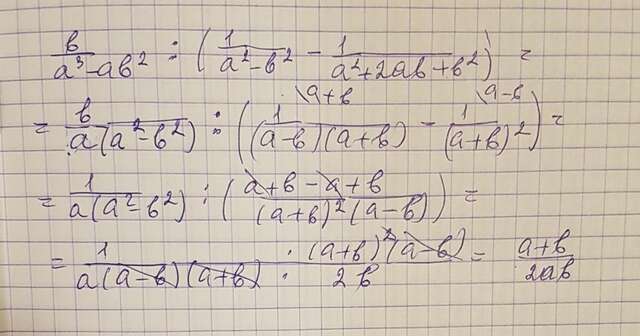 b/(a³-ab²) : (1/(a²-b²) - 1/(a²+2ab+b²)) =
= b/(a(a²-b²)) : (1\a+b/((a-b)(a+b)) - 1\a-b/(a+b)²) =
= 1/(a(a²-b²)) : ((a+b-a+b)/((a+b)²(a-b))) =
= 1/(a(a-b)(a+b)) · (a+b)²(a-b)/2b = (a+b)/2ab